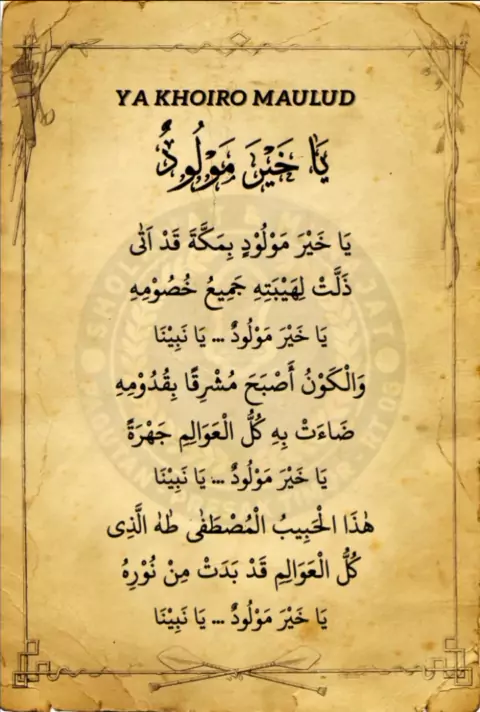 YA KHOIRO MAULUD
يَا خَيْرَ مَوْلُودٌ
يَا خَيْرَ مَوْلُوْدٍ بِمَكَّةَ قَدْ اَتَى
ذَلَّتْ لِهَيْبَتِهِ جَمِيعُ خُصُوْمِهِ
يَا خَيْرَ مَوْلُودٌ ... يَا نَبِيْنَا
وَالْكَوْنُ أَصْبَحَ مُشْرِقًا بِقُدُوْمِهِ
ضَاءَتْ بِهِ كُلُّ الْعَوَالِمِ جَهْرَةً
يَا خَيْرَ مَوْلُودٌ ... يَا نَبِيْنَا
هٰذَا الْحَبِيبُ الْمُصْطَفٰى طٰهٰ الَّذِى
كُلُّ الْعَوَالِمِ قَدْ بَدَتْ مِنْ نُوْرِهُ
يَا خَيْرَ مَوْلُودٌ ... يَا نَبِيْنَا